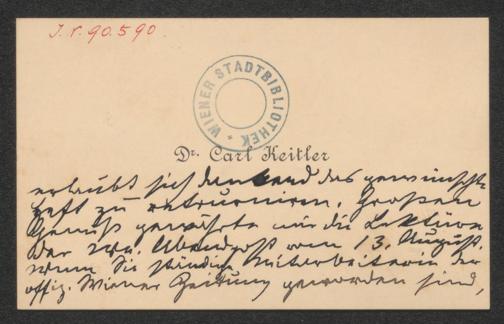 J.N. 90.590
WIENER STADTBIBLIOTHEK *
Dr. Carl Keitler
erlaubt sich dankend das gewünschte
Heft zu retournieren. Großen
Genuß gewährte mir die Lektüre
der Abendpost vom 13. August.
Wenn Sie ständige Mitarbeiterin der
offiz. Wiener Zeitung geworden sind,